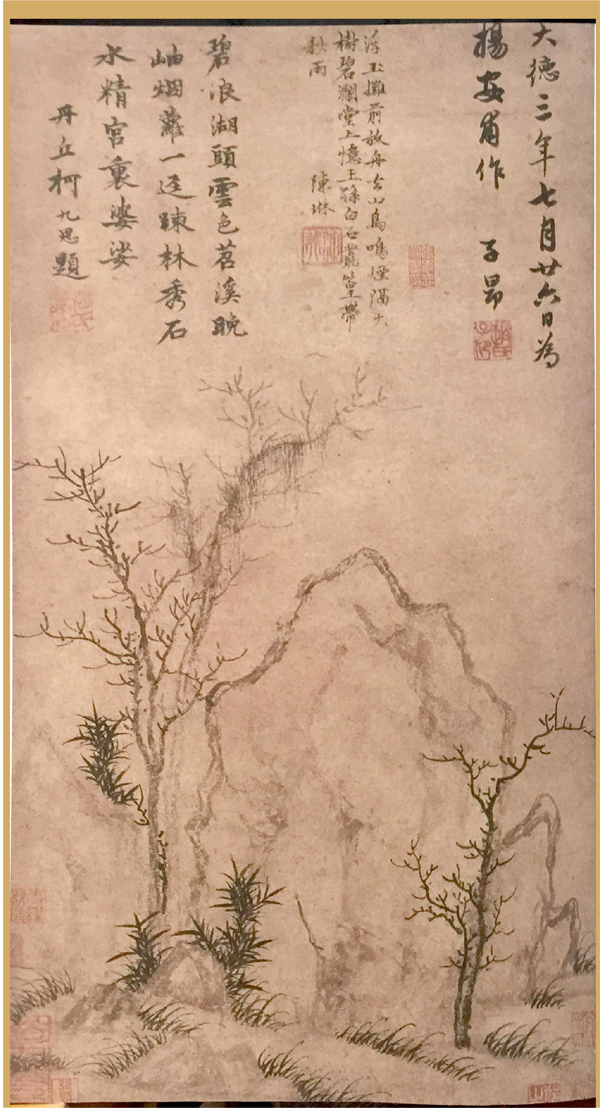 大德三年七月廿六日為
楊安甫作 子昂
趙氏子昂
浮玉攤前放舟去山鳥鳴煙隔大
樹碧瀾堂上憶王孫白石叢篁帶
秋雨 陳琳
碧浪湖頭雲色苕溪晚
岫烟蘿一逕踈林秀石
水精宮裏婆娑
丹丘柯九思題